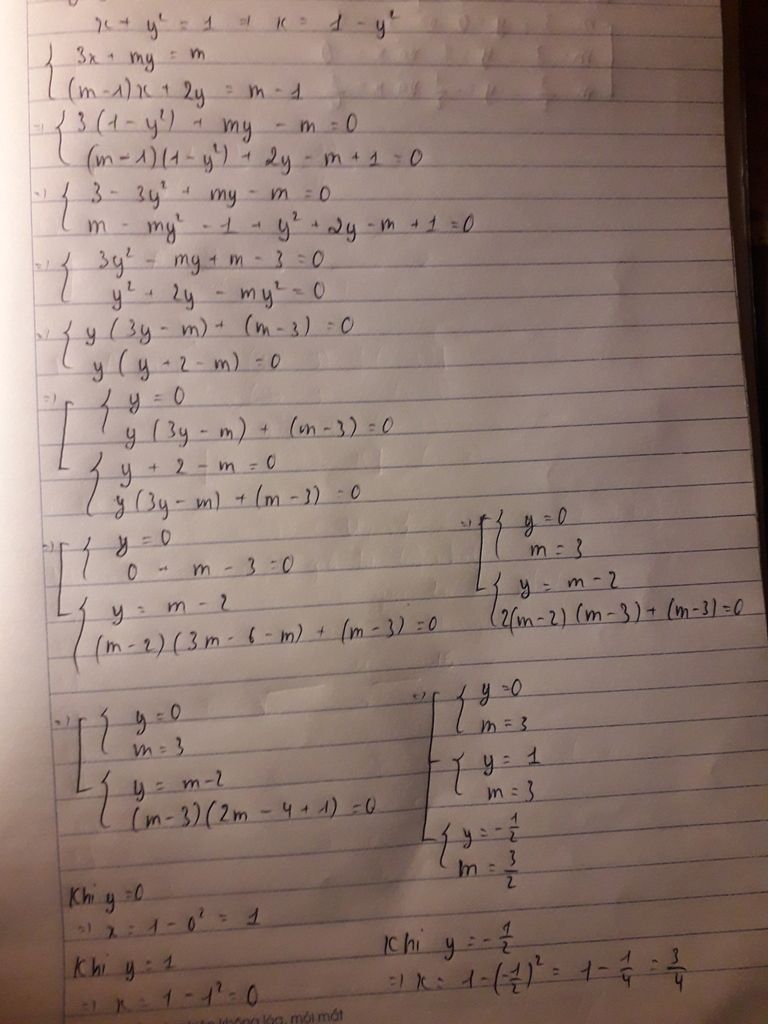 x + y² = 1 => x = 1 - y²
{ 3x + my = m
(m-1)x + 2y = m - 1
=> { 3(1 - y²) + my - m = 0
(m-1)(1-y²) + 2y - m + 1 = 0
=> { 3 - 3y² + my - m = 0
m - my² - 1 + y² + 2y - m + 1 = 0
=> { 3y² - my + m - 3 = 0
y² + 2y - my² = 0
=> { y (3y - m) + (m-3) = 0
y (y + 2 - m) = 0
=> [ { y = 0
y (3y - m) + (m-3) = 0
{ y + 2 - m = 0
y (3y - m) + (m-3) = 0
=> [ { y = 0
0 - m - 3 = 0
{ y = m - 2
(m-2)(3m - 6 - m) + (m-3) = 0
=> [ { y = 0
m = 3
{ y = m - 2
2(m-2)(m-3) + (m-3) = 0
=> [ { y = 0
m = 3
{ y = m-2
(m-3)(2m - 4 + 1) = 0
=> [ { y = 0
m = 3
{ y = 1
m = 3
{ y = -1/2
m = 3/2
Khi y = 0
=> x = 1 - 0² = 1
Khi y = 1
=> x = 1 - 1² = 0
Khi y = -1/2
=> x = 1 - (-1/2)² = 1 - 1/4 = 3/4
không lóa, mỏi mắt